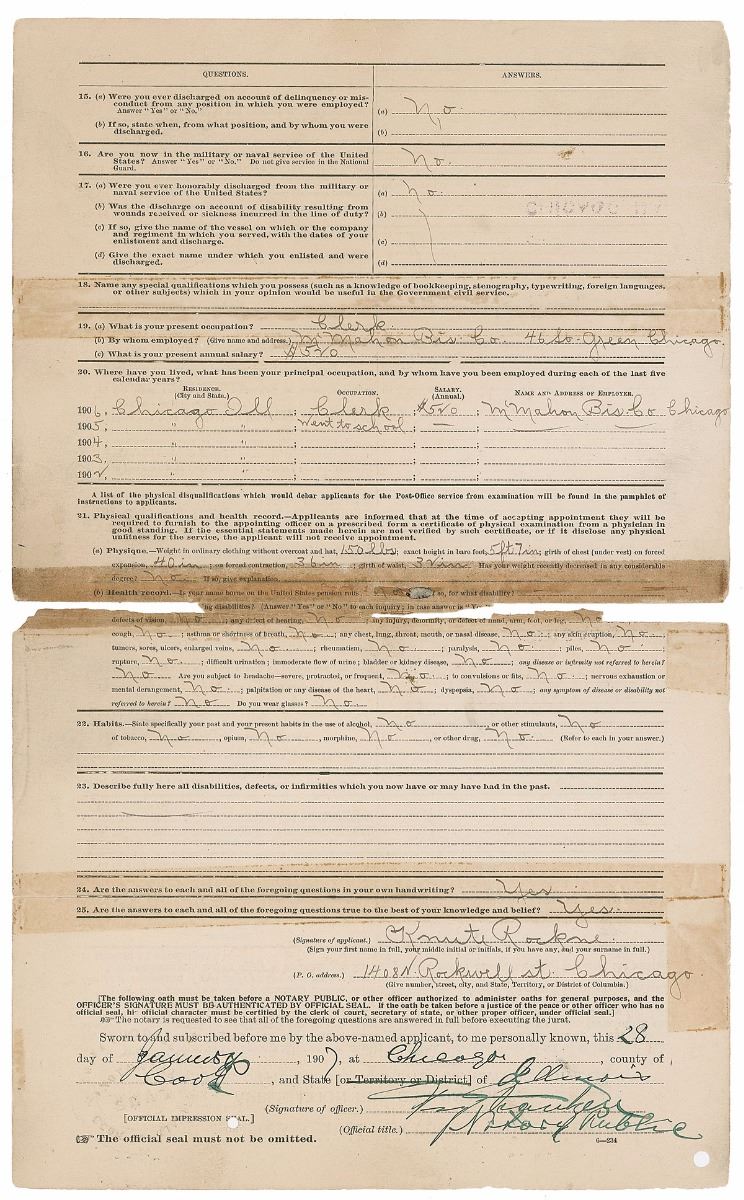 QUESTIONS. ANSWERS.
15. (a) Were you ever discharged on account of delinquency or mis-
conduct from any position in which you were employed?
Answer "Yes" or "No." (a) No.
(b) If so, state when, from what position, and by whom you were
discharged. (b) "
16. Are you now in the military or naval service of the United
States? Answer "Yes" or "No." Do not give service in the National No.
Guard.
17. (a) Were you ever honorably discharged from the military or
naval service of the United States? (a) No.
(b) Was the discharge on account of disability resulting from
wounds received or sickness incurred in the line of duty? (b)
(c) If so, give the name of the vessel on which or the company
and regiment in which you served, with the dates of your
enlistment and discharge. (c)
(d) Give the exact name under which you enlisted and were
discharged. (d)
18. Name any special qualifications which you possess (such as a knowledge of bookkeeping, stenography, typewriting, foreign languages,
or other subjects) which in your opinion would be useful in the Government civil service.
19. (a) What is your present occupation? Clerk.
(b) By whom employed? (Give name and address.) McMahon Bis. Co. 46 So. Green Chicago.
(c) What is your present annual salary? $520
20. Where have you lived, what has been your principal occupation, and by whom have you been employed during each of the last five
calendar years?
RESIDENCE. (City and State.) OCCUPATION. SALARY. (Annual.) NAME AND ADDRESS OF EMPLOYER.
1906, Chicago Ill ; Clerk ; $520 ; McMahon Bis. Co. Chicago
1905, " " ; Went to school ; —
1904, " " ; ; ;
1903, " " ; ; ;
1902, " " ; ; ;
A list of the physical disqualifications which would debar applicants for the Post-Office service from examination will be found in the pamphlet of
instructions to applicants.
21. Physical qualifications and health record.—Applicants are informed that at the time of accepting appointment they will be
required to furnish to the appointing officer on a prescribed form a certificate of physical examination from a physician in
good standing. If the essential statements made herein are not verified by such certificate, or if it disclose any physical
unfitness for the service, the applicant will not receive appointment.
(a) Physique.—Weight in ordinary clothing without overcoat and hat, 150 lbs; exact height in bare feet, 5ft 7in; girth of chest (under vest) on forced
expansion, 40 in; on forced contraction, 36 in; girth of waist, 32 in Has your weight recently decreased in any considerable
degree? No. If so, give explanation.
(b) Health record.—Is your name borne on the United States pension rolls? No. If so, for what disability?
ing disabilities? (Answer "Yes" or "No" to each inquiry; in case answer is "Y
defects of vision, No; any defect of hearing, No; any injury, deformity, or defect of hand, arm, foot, or leg, No
cough, No; asthma or shortness of breath, No; any chest, lung, throat, mouth, or nasal disease, No; any skin eruption, No
tumors, sores, ulcers, enlarged veins, No; rheumatism, No; paralysis, No; piles, No
rupture, No; difficult urination; immoderate flow of urine; bladder or kidney disease, No; any disease or infirmity not referred to herein?
No Are you subject to headache—severe, protracted, or frequent, No; to convulsions or fits, No; nervous exhaustion or
mental derangement, No; palpitation or any disease of the heart, No; dyspepsia, No; any symptom of disease or disability not
referred to herein? No Do you wear glasses? No
22. Habits.—State specifically your past and your present habits in the use of alcohol, No, or other stimulants, No
of tobacco, No, opium, No, morphine, No or other drug, No. (Refer to each in your answer.)
23. Describe fully here all disabilities, defects, or infirmities which you now have or may have had in the past.
24. Are the answers to each and all of the foregoing questions in your own handwriting? Yes
25. Are the answers to each and all of the foregoing questions true to the best of your knowledge and belief? Yes.
(Signature of applicant.) Knute Rockne
(Sign your first name in full, your middle initial or initials, if you have any, and your surname in full.)
(P. O. address.) 1408 N. Rockwell st. Chicago.
(Give number, street, city, and State, Territory, or District of Columbia.)
[The following oath must be taken before a NOTARY PUBLIC, or other officer authorized to administer oaths for general purposes, and the
OFFICER'S SIGNATURE MUST BE AUTHENTICATED BY OFFICIAL SEAL. If the oath be taken before a justice of the peace or other officer who has no
official seal, his official character must be certified by the clerk of court, secretary of state, or other proper officer, under official seal.]
The notary is requested to see that all of the foregoing questions are answered in full before executing the jurat.
Sworn to and subscribed before me by the above-named applicant, to me personally known, this 28
day of January, 1907, at Chicago, county of
Cook, and State [or Territory or District] of Illinois
(Signature of officer.)
[OFFICIAL IMPRESSION SEAL.]
(Official title.) Notary Public
The official seal must not be omitted. 6—234